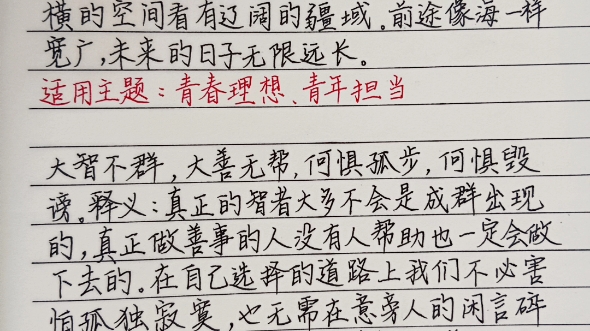 横的空间看有辽阔的疆域。前途像海一样
宽广,未来的日子无限远长。
适用主题:青春理想、青年担当
大智不群,大善无帮,何惧孤步,何惧毁
谤。释义:真正的智者大多不会是成群出现
的,真正做善事的人没有人帮助也一定会做
下去的。在自己选择的道路上我们不必害
怕孤独寂寞,也无需在意旁人的闲言碎